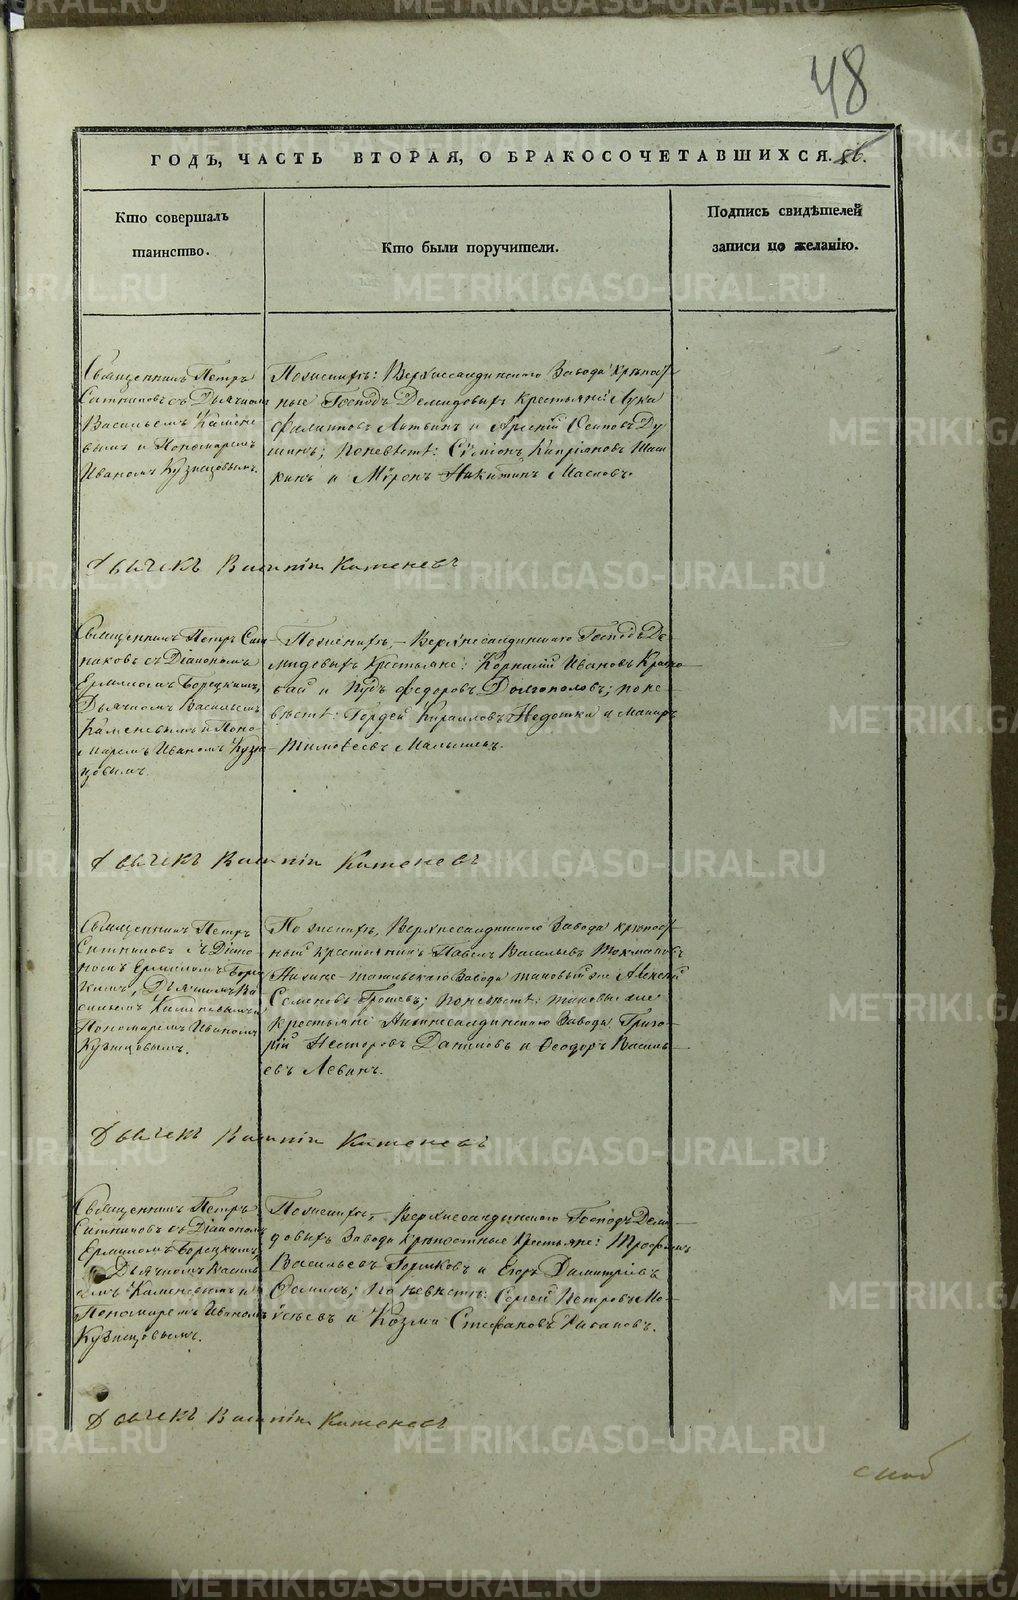 METRIKI.GASO-URAL.RU
48
ГОДЪ, ЧАСТЬ ВТОРАЯ, О БРАКОСОЧЕТАВШИХСЯ.
Кто совершалъ
таинство.
Кто были поручители.
Подпись свидѣтелей
записи по желанію.
Священникъ Петръ
Ситниковъ съ Дьячкомъ
Васильемъ Камене
вымъ и Пономаремъ
Иваномъ Кузнецовымъ.
По женихѣ: Верхнесалдинского Завода крѣпост
ные Господъ Демидовыхъ крестьяне Лука
Филиповъ и Арсеній Осиповъ Ду
шинъ; по невѣстѣ: Сѵмеонъ Кипріяновъ
и Мѵронъ Никитинъ Масловъ.
Дьячекъ Василій Каменевъ
Священникъ Петръ Сит
никовъ съ Діакономъ
Ермиломъ Борецкимъ,
Дьячкомъ Васильемъ
Каменевымъ и Поно
маремъ Иваномъ Кузне
цовымъ.
По женихѣ, Верхнесалдинского Господъ Де
мидовыхъ Крестьяне: Корнилій Ивановъ
и Ѳедоровъ Долгополовъ; по не
вѣстѣ: Гордей Кирилловъ Недотка и
Тимоѳеевъ Малышевъ.
Дьячекъ Василій Каменевъ
Священникъ Петръ
Ситниковъ съ Діако
номъ Ермиломъ Борец
кимъ, Дьячкомъ Ва
сильемъ Каменевымъ и
Пономаремъ Иваномъ
Кузнецовымъ.
По женихѣ, Верхнесалдинского Завода крѣпост
ный крестьянинъ Павелъ Васильевъ Токмаковъ
Нижне-тагильскаго Завода таковый же Алексей
Семеновъ Грошевъ; по невѣстѣ: таковые же
крестьяне Нижнесалдинского Завода Григо
рій Несторовъ Даниловъ и Ѳеодоръ Василь
евъ Левинъ.
Дьячекъ Василій Каменевъ
Священникъ Петръ
Ситниковъ съ Діакономъ
Ермиломъ Борецкимъ,
Дьячкомъ Василь
емъ Каменевымъ и
Пономаремъ Иваномъ
Кузнецовымъ.
По женихѣ, Верхнесалдинского Господъ Деми
довыхъ Завода Крѣпостные крестьяне: Трофимъ
Васильевъ и Егоръ Димитріевъ
по невѣстѣ: Сергей Петровъ Мо
исѣевъ и Козма Стефановъ
Дьячекъ Василій Каменевъ